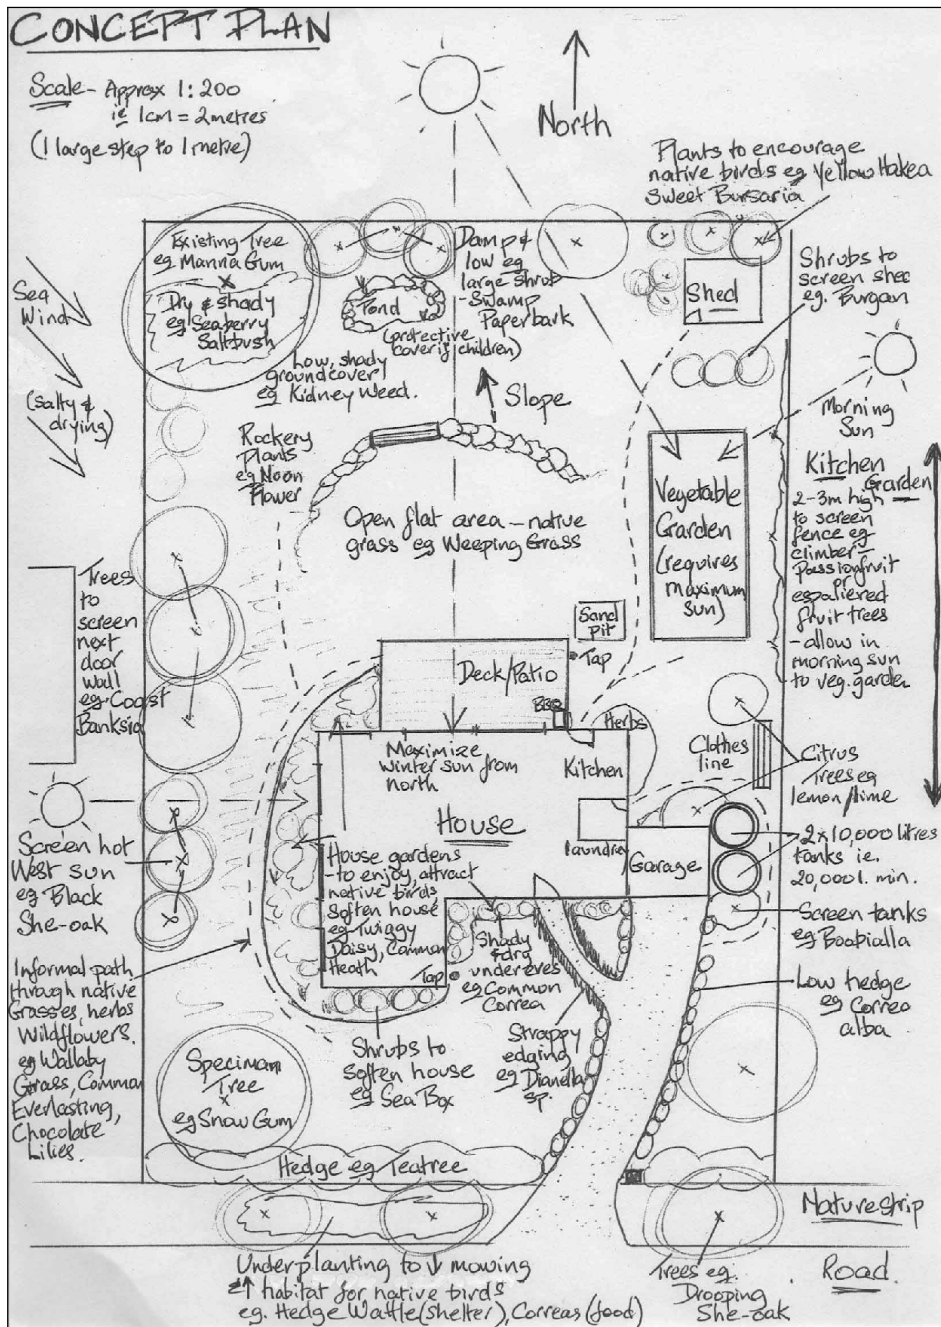 CONCEPT PLAN
Scale - Approx 1:200
ie 1cm = 2metres
(1 large step to 1 metre)
North
Plants to encourage
native birds eg Yellow Hakea
Sweet Bursaria
Existing Tree
eg Manna Gum
Dry & shady
eg Seaberry
Saltbush
Pond
(protective
cover if children)
Damp &
low eg
large shrub
- Swamp
Paperbark
Shed
Shrubs to
screen shed
eg. Burgan
Sea
Wind
(salty &
drying)
Low, shady
groundcover
eg Kidney Weed.
Slope
Morning
Sun
Rockery
plants
eg Noon
Flower
Open flat area - native
grass eg Weeping Grass
Vegetable
Garden
(requires
maximum
sun)
Kitchen
Garden
2-3m high
to screen
fence eg
climber -
Passionfruit
or
espaliered
fruit trees
- allow in
morning sun
to veg. garden
Trees
to
screen
next
door
wall
eg. Coast
Banksia
Sand
pit
Tap
Deck/Patio
BBQ
Herbs
Clothes
line
Citrus
Trees eg
lemon/lime
Maximize
winter sun from
north
Kitchen
House
Laundry
Garage
2 x 10,000 litres
tanks ie.
20,000l. min.
Screen tanks
eg Boobialla
Screen hot
West sun
eg Black
She-oak
House gardens
- to enjoy, attract
native birds
Soften house
eg Twiggy
Daisy, Common
Heath
Tap
Shady
& dry
under eves
eg Common
Correa
Low hedge
eg Correa
alba
Informal path
through native
Grasses, herbs
Wildflowers.
eg Wallaby
Grass, Common
Everlasting,
Chocolate
Lilies.
Shrubs to
soften house
eg Sea Box
Strappy
edging
eg Dianella
sp.
Speciman
Tree
eg Snow Gum
Hedge eg Teatree
Naturestrip
Underplanting to ↓ mowing
& ↑ habitat for native birds
eg. Hedge Wattle (shelter), Correas (food)
Trees eg.
Drooping
She-oak
Road